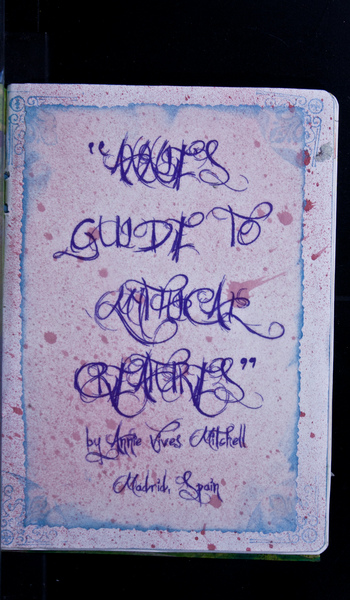 “ANNIES
GUIDE TO
MYTHICAL
CREATURES”
by Annie Vives Mitchell
Madrid, Spain